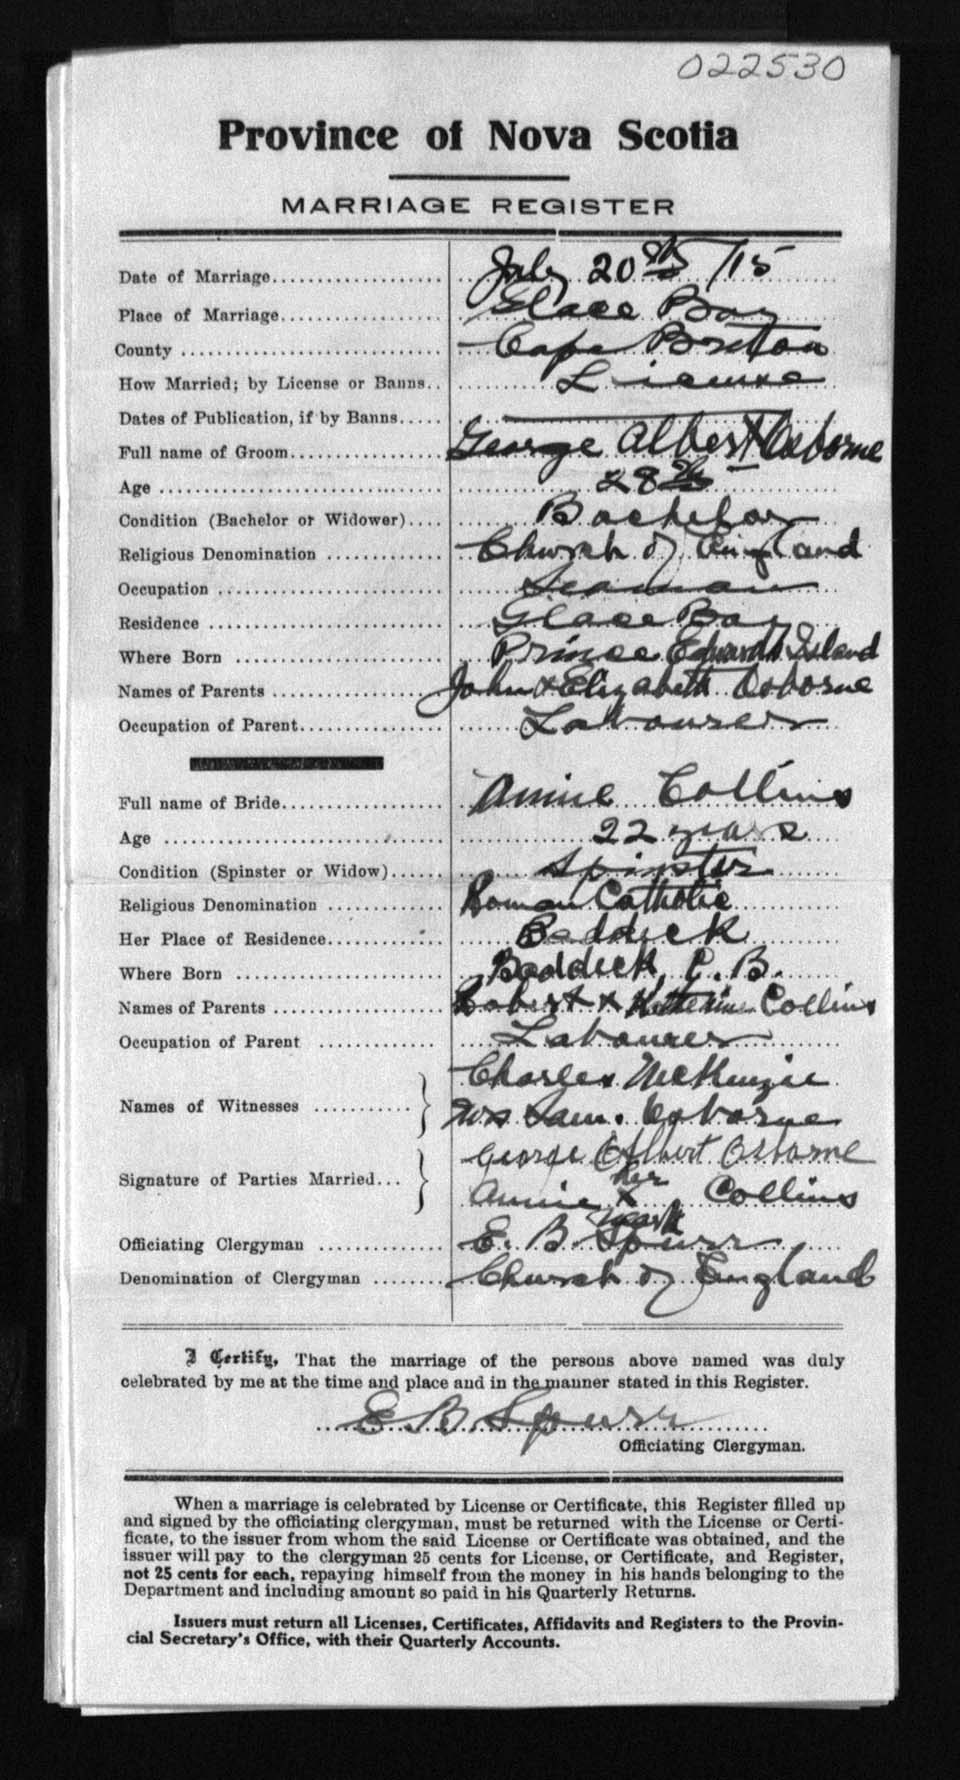 022530
Province of Nova Scotia
MARRIAGE REGISTER
Date of Marriage.................... July 20th /15
Place of Marriage.................... Glace Bay
County .................... Cape Breton
How Married; by License or Banns.. License
Dates of Publication, if by Banns..... ———
Full name of Groom.................... George Albert Osborne
Age .................... 28
Condition (Bachelor or Widower).... Bachelor
Religious Denomination .............. Church of England
Occupation .................... Seaman
Residence .................... Glace Bay
Where Born .................... Prince Edward Island
Names of Parents .................... John & Elizabeth Osborne
Occupation of Parent................. Labourer
Full name of Bride.................... Annie Collins
Age .................... 22 years
Condition (Spinster or Widow)...... Spinster
Religious Denomination .............. Roman Catholic
Her Place of Residence.............. Baddeck
Where Born .................... Baddeck, C. B.
Names of Parents .................... Robert & Katherine Collins
Occupation of Parent .............. Labourer
Names of Witnesses ........... } Charles McKenzie
Mrs Sam. Osborne
Signature of Parties Married... } George Albert Osborne
Annie her x mark Collins
Officiating Clergyman .............. E. B. Spurr
Denomination of Clergyman ........ Church of England
I Certify, That the marriage of the persons above named was duly
celebrated by me at the time and place and in the manner stated in this Register.
E B Spurr
Officiating Clergyman.
When a marriage is celebrated by License or Certificate, this Register filled up
and signed by the officiating clergyman, must be returned with the License or Certi-
ficate, to the issuer from whom the said License or Certificate was obtained, and the
issuer will pay to the clergyman 25 cents for License, or Certificate, and Register,
not 25 cents for each, repaying himself from the money in his hands belonging to the
Department and including amount so paid in his Quarterly Returns.
Issuers must return all Licenses, Certificates, Affidavits and Registers to the Provin-
cial Secretary's Office, with their Quarterly Accounts.